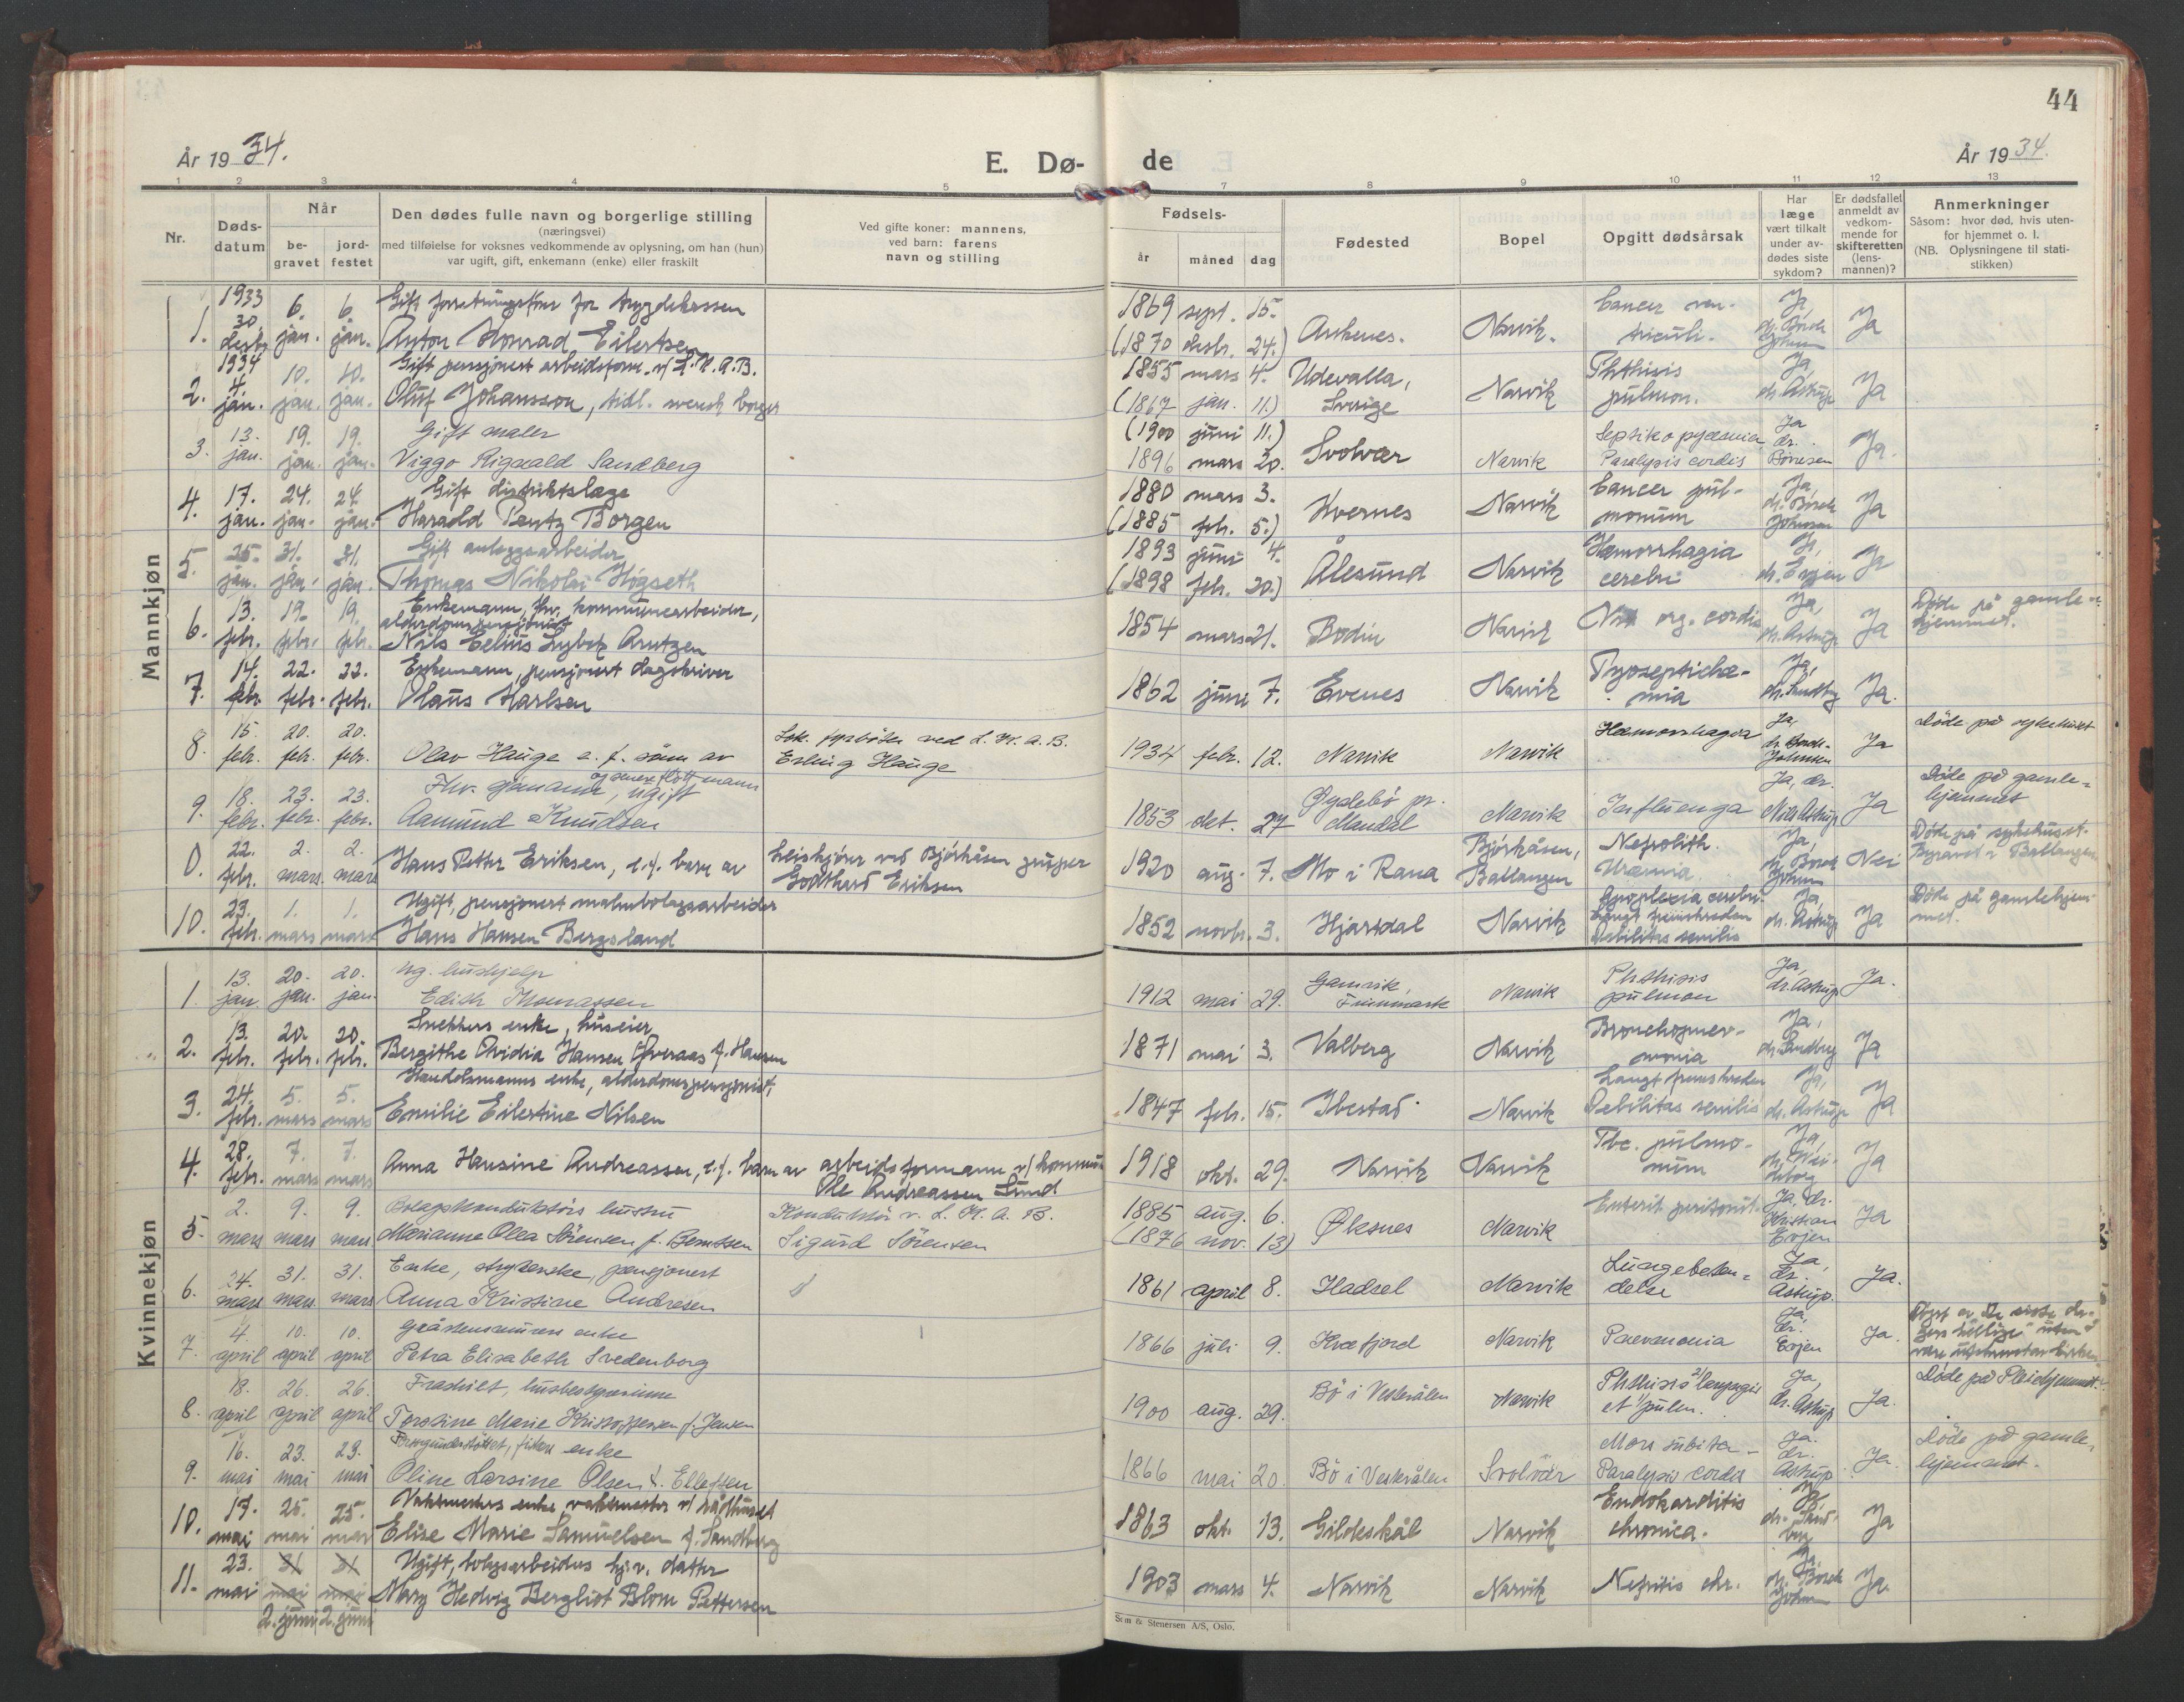 44
År 1934.
E. Dø-
de
År 1934.
1 2 3 4 5 7 8 9 10 11 12 13
Nr.
Døds-
datum
Når
be-
gravet
jord-
festet
Den dødes fulle navn og borgerlige stilling
(næringsvei)
med tilføielse for voksnes vedkommende av oplysning, om han (hun)
var ugift, gift, enkemann (enke) eller fraskilt
Ved gifte koner: mannens,
ved barn: farens
navn og stilling
Fødsels-
år måned dag
Fødested
Bopel
Opgitt dødsårsak
Har
læge
vært tilkalt
under av-
dødes siste
sykdom?
Er dødsfallet
anmeldt av
vedkom-
mende for
skifteretten
(lens-
mannen)?
Anmerkninger
Såsom: hvor død, hvis uten-
for hjemmet o. l.
(NB. Oplysningene til stati-
stikken)
Mannkjøn
1933 6. 6. Gift forretningsfører for trygdekassen 1869 sept. 15. Cancer ven- Ja,
1. 30. desbr. jan. jan. Anton Konrad Eilertsen (1870 desbr. 24.) Ankenes. Narvik. triculi. dr. Borch Johnsen Ja
1934 10. 10. Gift pensjonert arbeidsform. v/ L.K.A.B. 1855 mars 4. Udevalla, Phthisis Ja,
2. 4. jan. jan. jan. Oluf Johansson, tidl. svensk borger (1867 jan. 11.) Sverige Narvik pulmon. dr. Astrup Ja
13. 19. 19. Gift maler (1900 juni 11.) Septiko pyæmia Ja
3. jan. jan. jan. Viggo Rigvald Sandberg 1896 mars 20. Svolvær Narvik Paralysis cordis dr. Ja.
17. 24. 24. Gift distriktslæge 1880 mars 3. Cancer pul- Ja,
4. jan. jan. jan. Harald Pentz Borgen (1885 febr. 5.) Kvernes Narvik monum dr. Borch Johnsen Ja
25. 31. 31. Gift anleggsarbeider 1893 juni 4. Hæmorrhagia Ja,
5. jan. jan. jan. Thomas Nikolai Høgseth (1898 febr. 20.) Ålesund Narvik cerebri dr. Evjen Ja
13. 19. 19. Enkemann, fhv. kommunearbeider,
alderdomspensjonist
6. febr. febr. febr. Nils Eelius Lybek Arntzen 1854 mars 21. Bodin Narvik org. cordis Ja, dr. Astrup Ja Døde på gamle-
hjemmet.
14. 22. 22. Enkemann, pensjonert dagskriver Pyoseptichæ- Ja,
7. febr. febr. febr. Olaus Karlsen 1862 juni 7. Evenes Narvik mia dr. Sandberg Ja.
15. 20. 20. Lok. fyrbøter ved L.K.A.B. Hæmorrhagia Ja, Døde på sykehuset
8. febr. febr. febr. Olav Hauge e. f. sønn av Erling Hauge 1934 febr. 12. Narvik Narvik dr. Borch-Johnsen Ja
Fhv. gjømann, ugift
9. 18. 23. 23. febr. febr. febr. Aamund Knudsen 1853 okt. 27 Øyslebø pr. Mandal Narvik Influenza Ja, dr. Nils Astrup Ja Døde på gamle-
hjemmet
22. 2. 2. heiskjører ved Bjørkåsen gruber Bjørkåsen, Nefrolith. Ja, Døde på sykehuset.
0. febr. mars. mars Hans Petter Eriksen, e.f. barn av Godthard Eriksen 1920 aug. 7. Mo i Rana Ballangen Uræmia. dr. Borch Johnsen Nei Begravet i Ballangen
23. 1. 1. Ugift, pensjonert malmbolagsarbeider Apoplexia cerebri Ja, Døde på gamlehjem-
10. febr. mars mars Hans Hansen Bergsland 1852 novbr. 3. Hjartdal Narvik Langt fremskreden dr. Astrup Ja met.
Debilitas senilis
Kvinnekjøn
13. 20. 20. Ug. hushjelp Gamvik, Phthisis Ja,
1. jan. jan. jan. Edith Thomassen 1912 mai 29. Finnmark Narvik pulmon dr. Astrup Ja.
13. 20. 20. Snekkers enke, huseier Bronchopnev- Ja,
2. febr. febr. febr. Bergithe Ovidia Hansen Øveraas f. Hansen 1871 mai 3. Valberg Narvik monia dr. Sandberg Ja
24. 5. 5. Handelsmanns enke, alderdomspensjonist, Langt fremskreden Ja,
3. febr. mars mars Emilie Eilertine Nilsen 1847 febr. 15. Ibestad Narvik Debilitas senilis dr. Astrup Ja
28. 7. 7. arbeidsformann v/ kommun Tbc. pulmo- Ja,
4. febr. mars mars Anna Hansine Andreassen, e.f. barn av Ole Andreassen Lund 1918 okt. 29. Narvik Narvik num Ja
2. 9. 9. Bolagskonduktørs hustru Konduktør v. L.K.A.B. 1885 aug. 6. Enterit peritonit. Ja, dr.
5. mars mars mars Marianne Olea Sörensen f. Berntsen Sigurd Sörensen (1876 nov. 13) Øksnes Narvik Kristian Evjen Ja
24. 31. 31. Enke, strykerske, pensjonert Lungebeten- Ja,
6. mars mars. mars Anna Kristine Andresen 1861 april 8. Hadsel Narvik delse dr. Astrup. Ja.
4. 10. 10. gråstensmurers enke Ja,
7. april april april Petra Elisabeth Svedenborg 1866 juli 9. Kvæfjord Narvik Pnevmonia dr. Evjen Ja.
18. 26. 26. Fraskilt, husbestyrerinne Phthisis laryngis Ja, Døde på Pleiehjemmet.
8. april april april Torstine Marie Kristoffersen f. Jensen 1900 aug. 29. Bö i Vesterålen Narvik et pulm. dr. Astrup Ja.
16. 23. 23. Forsorgsunderstöttet, fiskers enke Mors subita - Ja. Døde på gamle-
9. mai mai mai Oline Larsine Olsen f. Ellefsen 1866 mai 20. Bö i Vesterålen Svolvær Paralysis cordis dr. Astrup Ja. hjemmet.
17. 25. 25. Vaktmesters enke vaktmester v/ rådhuset Endokarditis Ja,
10. mai mai mai Elise Marie Samuelsen f. Sandberg 1863 okt. 13. Gildeskål Narvik chronica. dr. Sand-
berg Ja
23. 31 31 Ugift, bolagsarbeiders hj.v. datter Ja,
11. mai mai mai Mary Hedvig Bergliot Blom Pettersen 1903 mars 4. Narvik Narvik Nefritis chr. dr. Borch Johnsen Ja.
2. juni 2. juni
Sem & Stenersen A/S, Oslo.